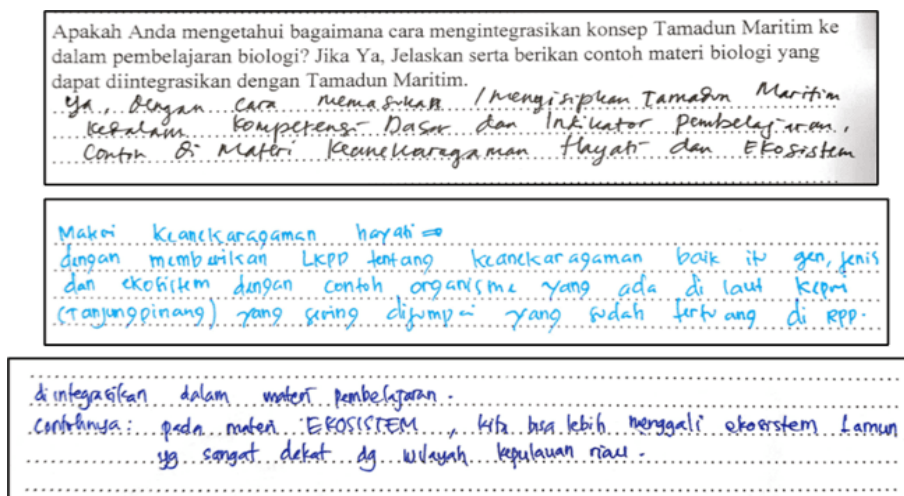 Apakah Anda mengetahui bagaimana cara mengintegrasikan konsep Tamadun Maritim ke
dalam pembelajaran biologi? Jika Ya, Jelaskan serta berikan contoh materi biologi yang
dapat diintegrasikan dengan Tamadun Maritim.
Ya, dengan cara memasukan / mengisipkan Tamadun Maritim
kedalam Kompetensi Dasar dan Indikator pembelajaran,
Contoh di Materi Keanekaragaman Hayati dan Ekosistem
Materi Keanekaragaman hayati ⇒
dengan memberikan LKPD tentang keanekaragaman baik itu gen, jenis
dan ekosistem dengan contoh organisme yang ada di laut Kepri
(Tanjungpinang) yang sering dijumpai yang sudah tertuang di RPP.
diintegrasikan dalam materi pembelajaran.
Contohnya: pada materi EKOSISTEM, kita bisa lebih menggali ekosistem Lamun
yg sangat dekat dg wilayah kepulauan riau.